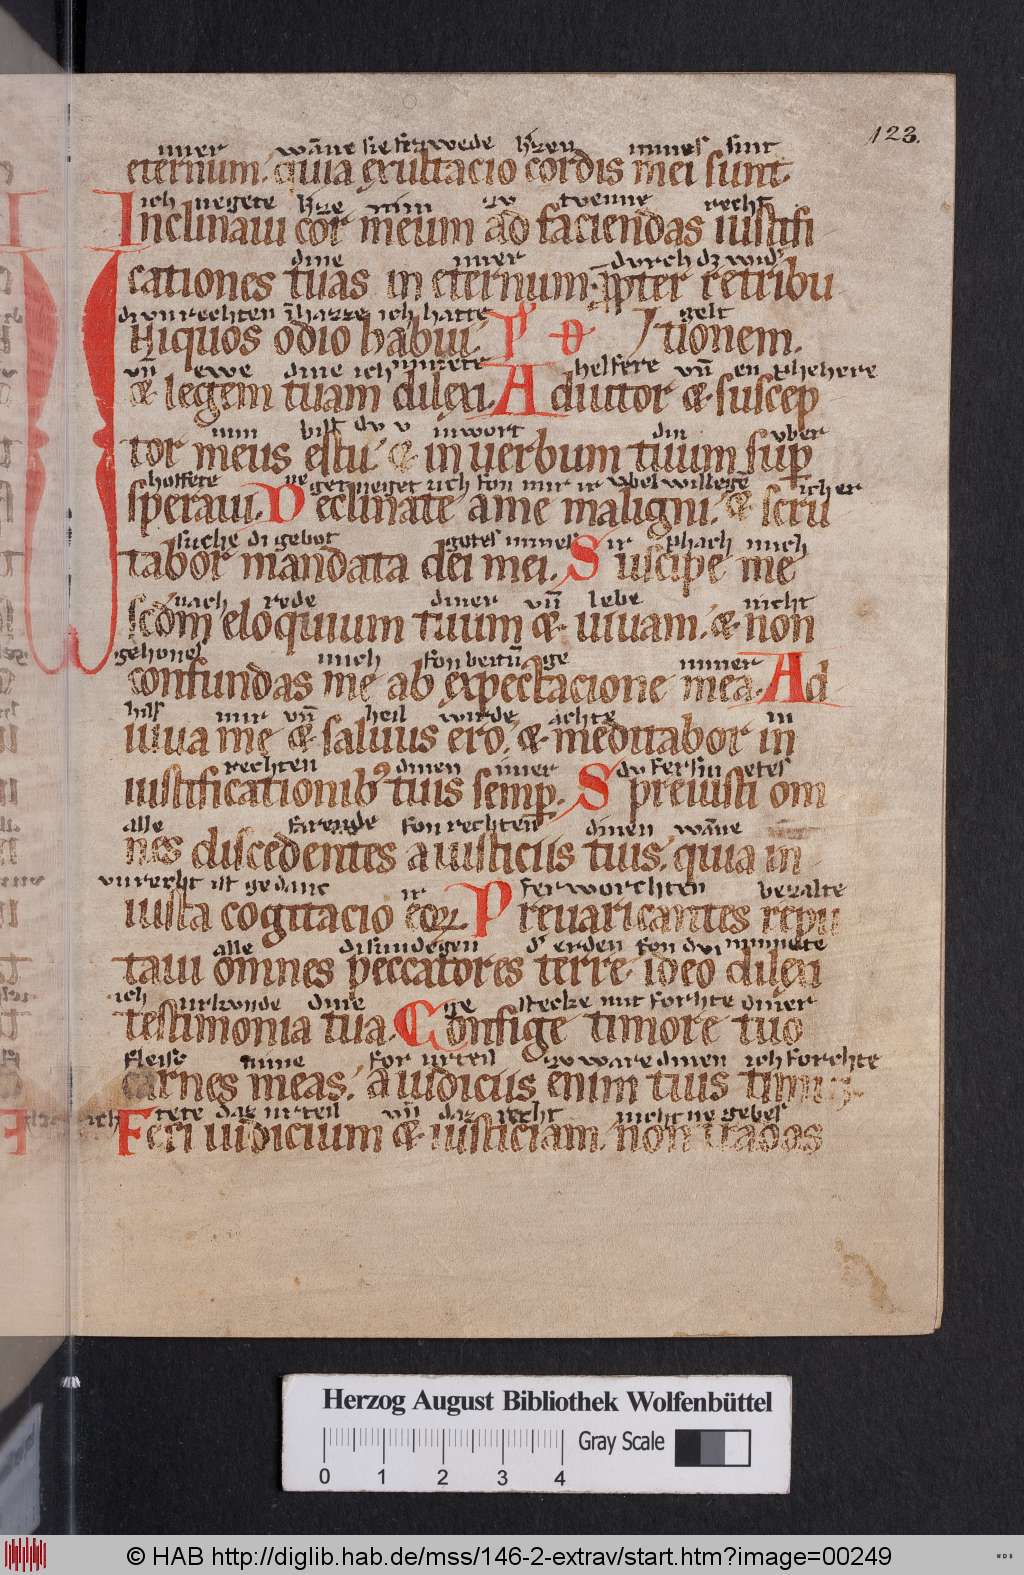 123.
immer wāne sie sīt zwede hʒen mines sint
eternum. quia exultacio cordis mei sunt.
ich negete hʒe min zv tvenne recht
Inclinaui cor meum ad faciendas iustifi
dine imer dvrch dʒ wid
cationes tuas in eternum. ꝓpter retribu
di vnrechten hazze ich hatte gelt
Hiquos odio habui. P tionem.
vn̄ ewe dine ich minnete helfere vn̄ en phehere
& legem tuam dilexi. Adiutor & suscep
min bist dv in wort din vber
tor meus es tu & in uerbum tuum suꝑ
hoffete ne get neget uch fon mir ir vbel willegē ich er
speraui. Declinate a me maligni. & scru
suche di gebot gotes mines ir phach mich
tabor mandata dei mei. Suscipe me
nach rede diner vn̄ lebe nicht
scd̄m eloquium tuum & uiuam. & non
gehones mich fon beitū ge miner
confundas me ab expectacione mea. Ad
hilf mir vn̄ heil wirde achte in
iuua me & saluus ero. & meditabor in
rechten dinen imer dv fersm etes
iustificationibꝰ tuis semꝑ. Spreuisti om
alle farende fon rechten dinen wāne
nes discedentes a iusticiis tuis. quia in
vnrecht ist gedanc ir ferworchten bezalte
iusta cogitacio eoꝝ. Preuaricantes repu
alle di sundegen d' erden fon dvi minnete
taui omnes peccatores terre. ideo dilexi
ich urkvnde dine ge stecke mit forhte diner
testimonia tua. Confige timore tuo
fleisc mine for urteil zv ware dinen ich forchte
carnes meas. a iudiciis enim tuis timui.
ich tete daz urteil vn̄ daz recht nicht ne gebes
Feci iudicium & iusticiam. non tradas
Herzog August Bibliothek Wolfenbüttel
Gray Scale
0 1 2 3 4
© HAB http://diglib.hab.de/mss/146-2-extrav/start.htm?image=00249